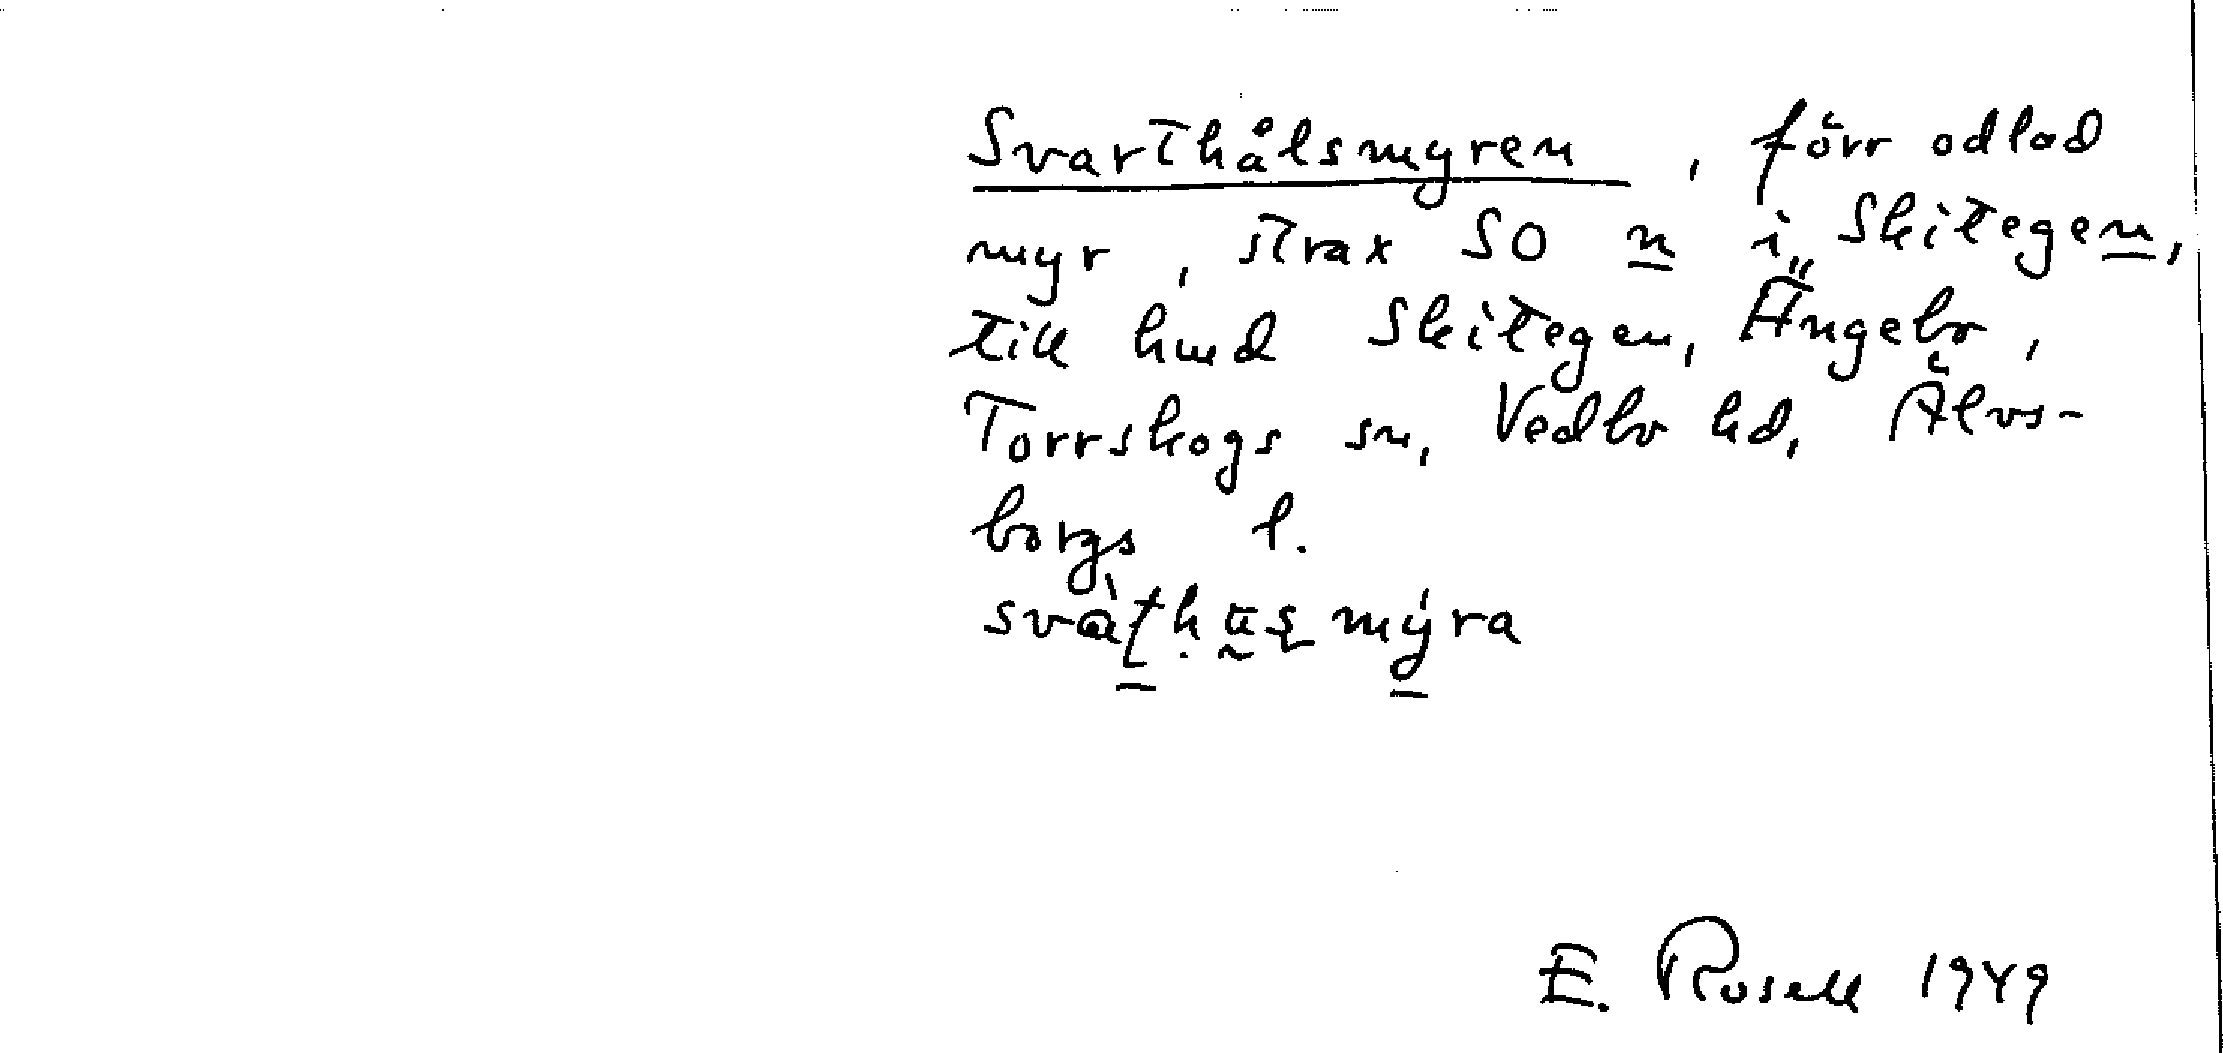 Svarthålsmyren, förr odlad
myr, strax SO n i Skitegen,
till hmd Skitegen, Ängebo,
Torrskogs sn, Vedbo hd, Älvs-
borgs l.
mýra
E. Rosell 1949